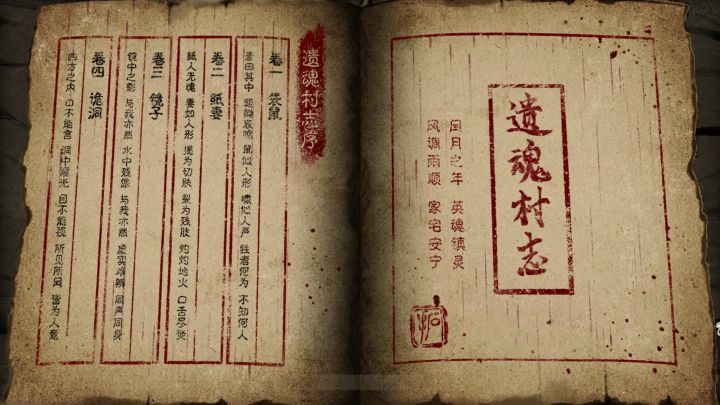 遗魂村志
闰月之年 英魂镇灵
风调雨顺 家宅安宁
遗魂村志序
卷一 袋鼠
其中 哀鸣 鼠似人形 啸似人声 牲者何为 不知何人
卷二 纸妻
纸人无魂 妻如人形 为切肤 裂为残肢 灼灼地火 口舌尽焚
卷三 镜子
镜中之影 与我亦然 水中残像 与我亦然 虚实难辨 同声同身
卷四 诡洞
四方之内 口不能言 洞中 光 目不能视 所见所闻 皆为人意